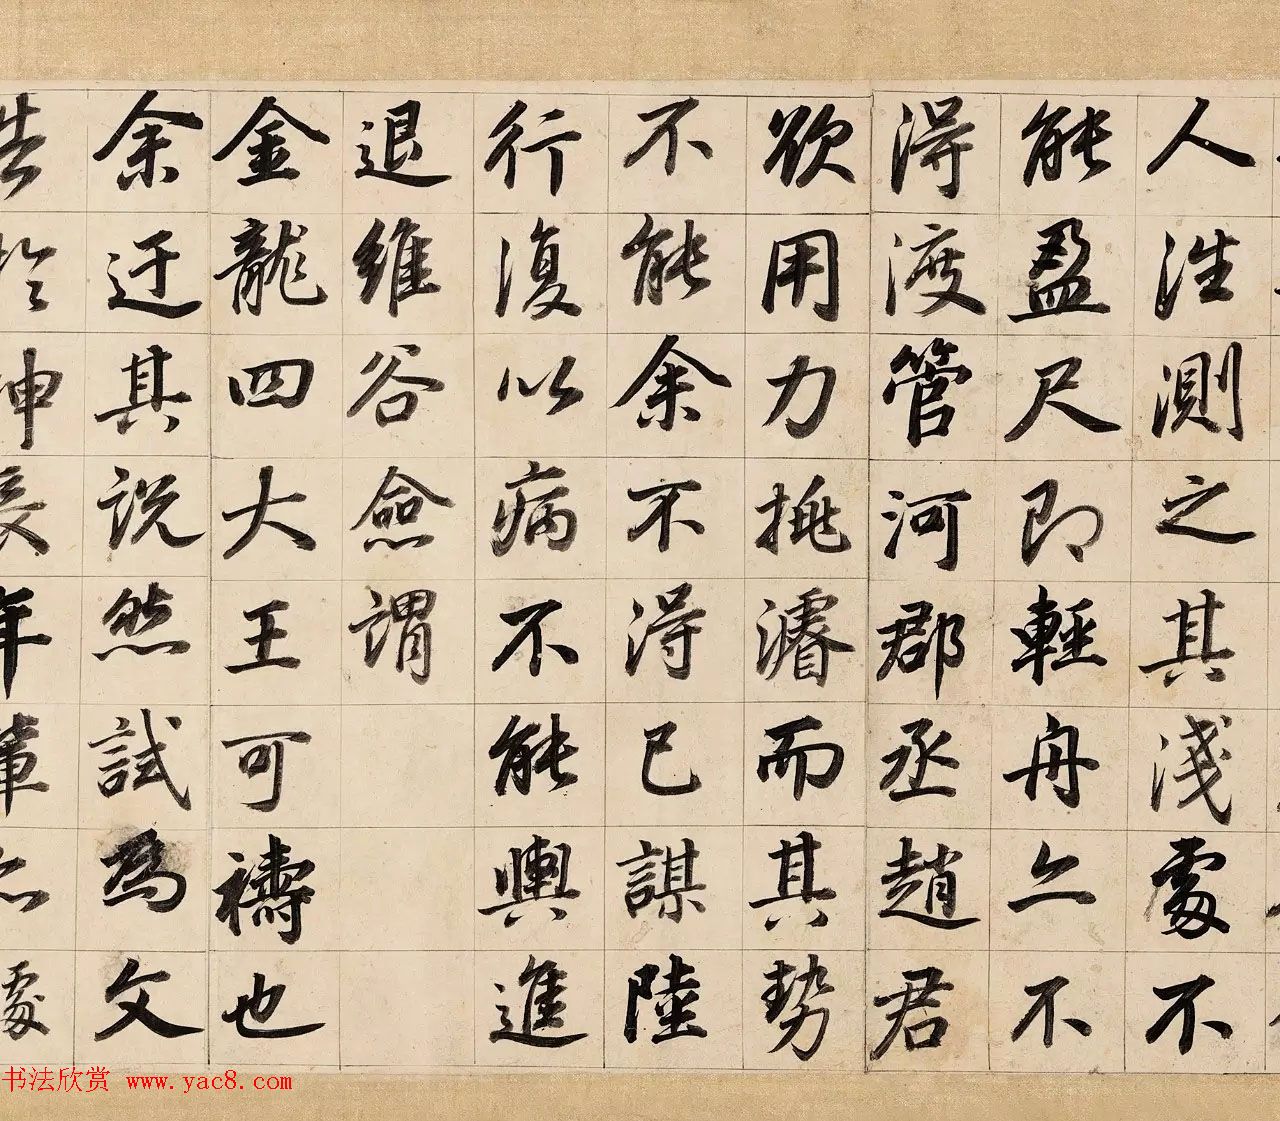 人往測之其淺處不
能盈尺即輕舟亦不
得渡管河郡丞趙君
欲用力挑濬而其勢
不能余不得已謀陸
行復以病不能輿進
退維谷僉謂
金龍四大王可禱也
余迂其說然試為文
告於神長年輩亦處
书法欣赏 www.yac8.com